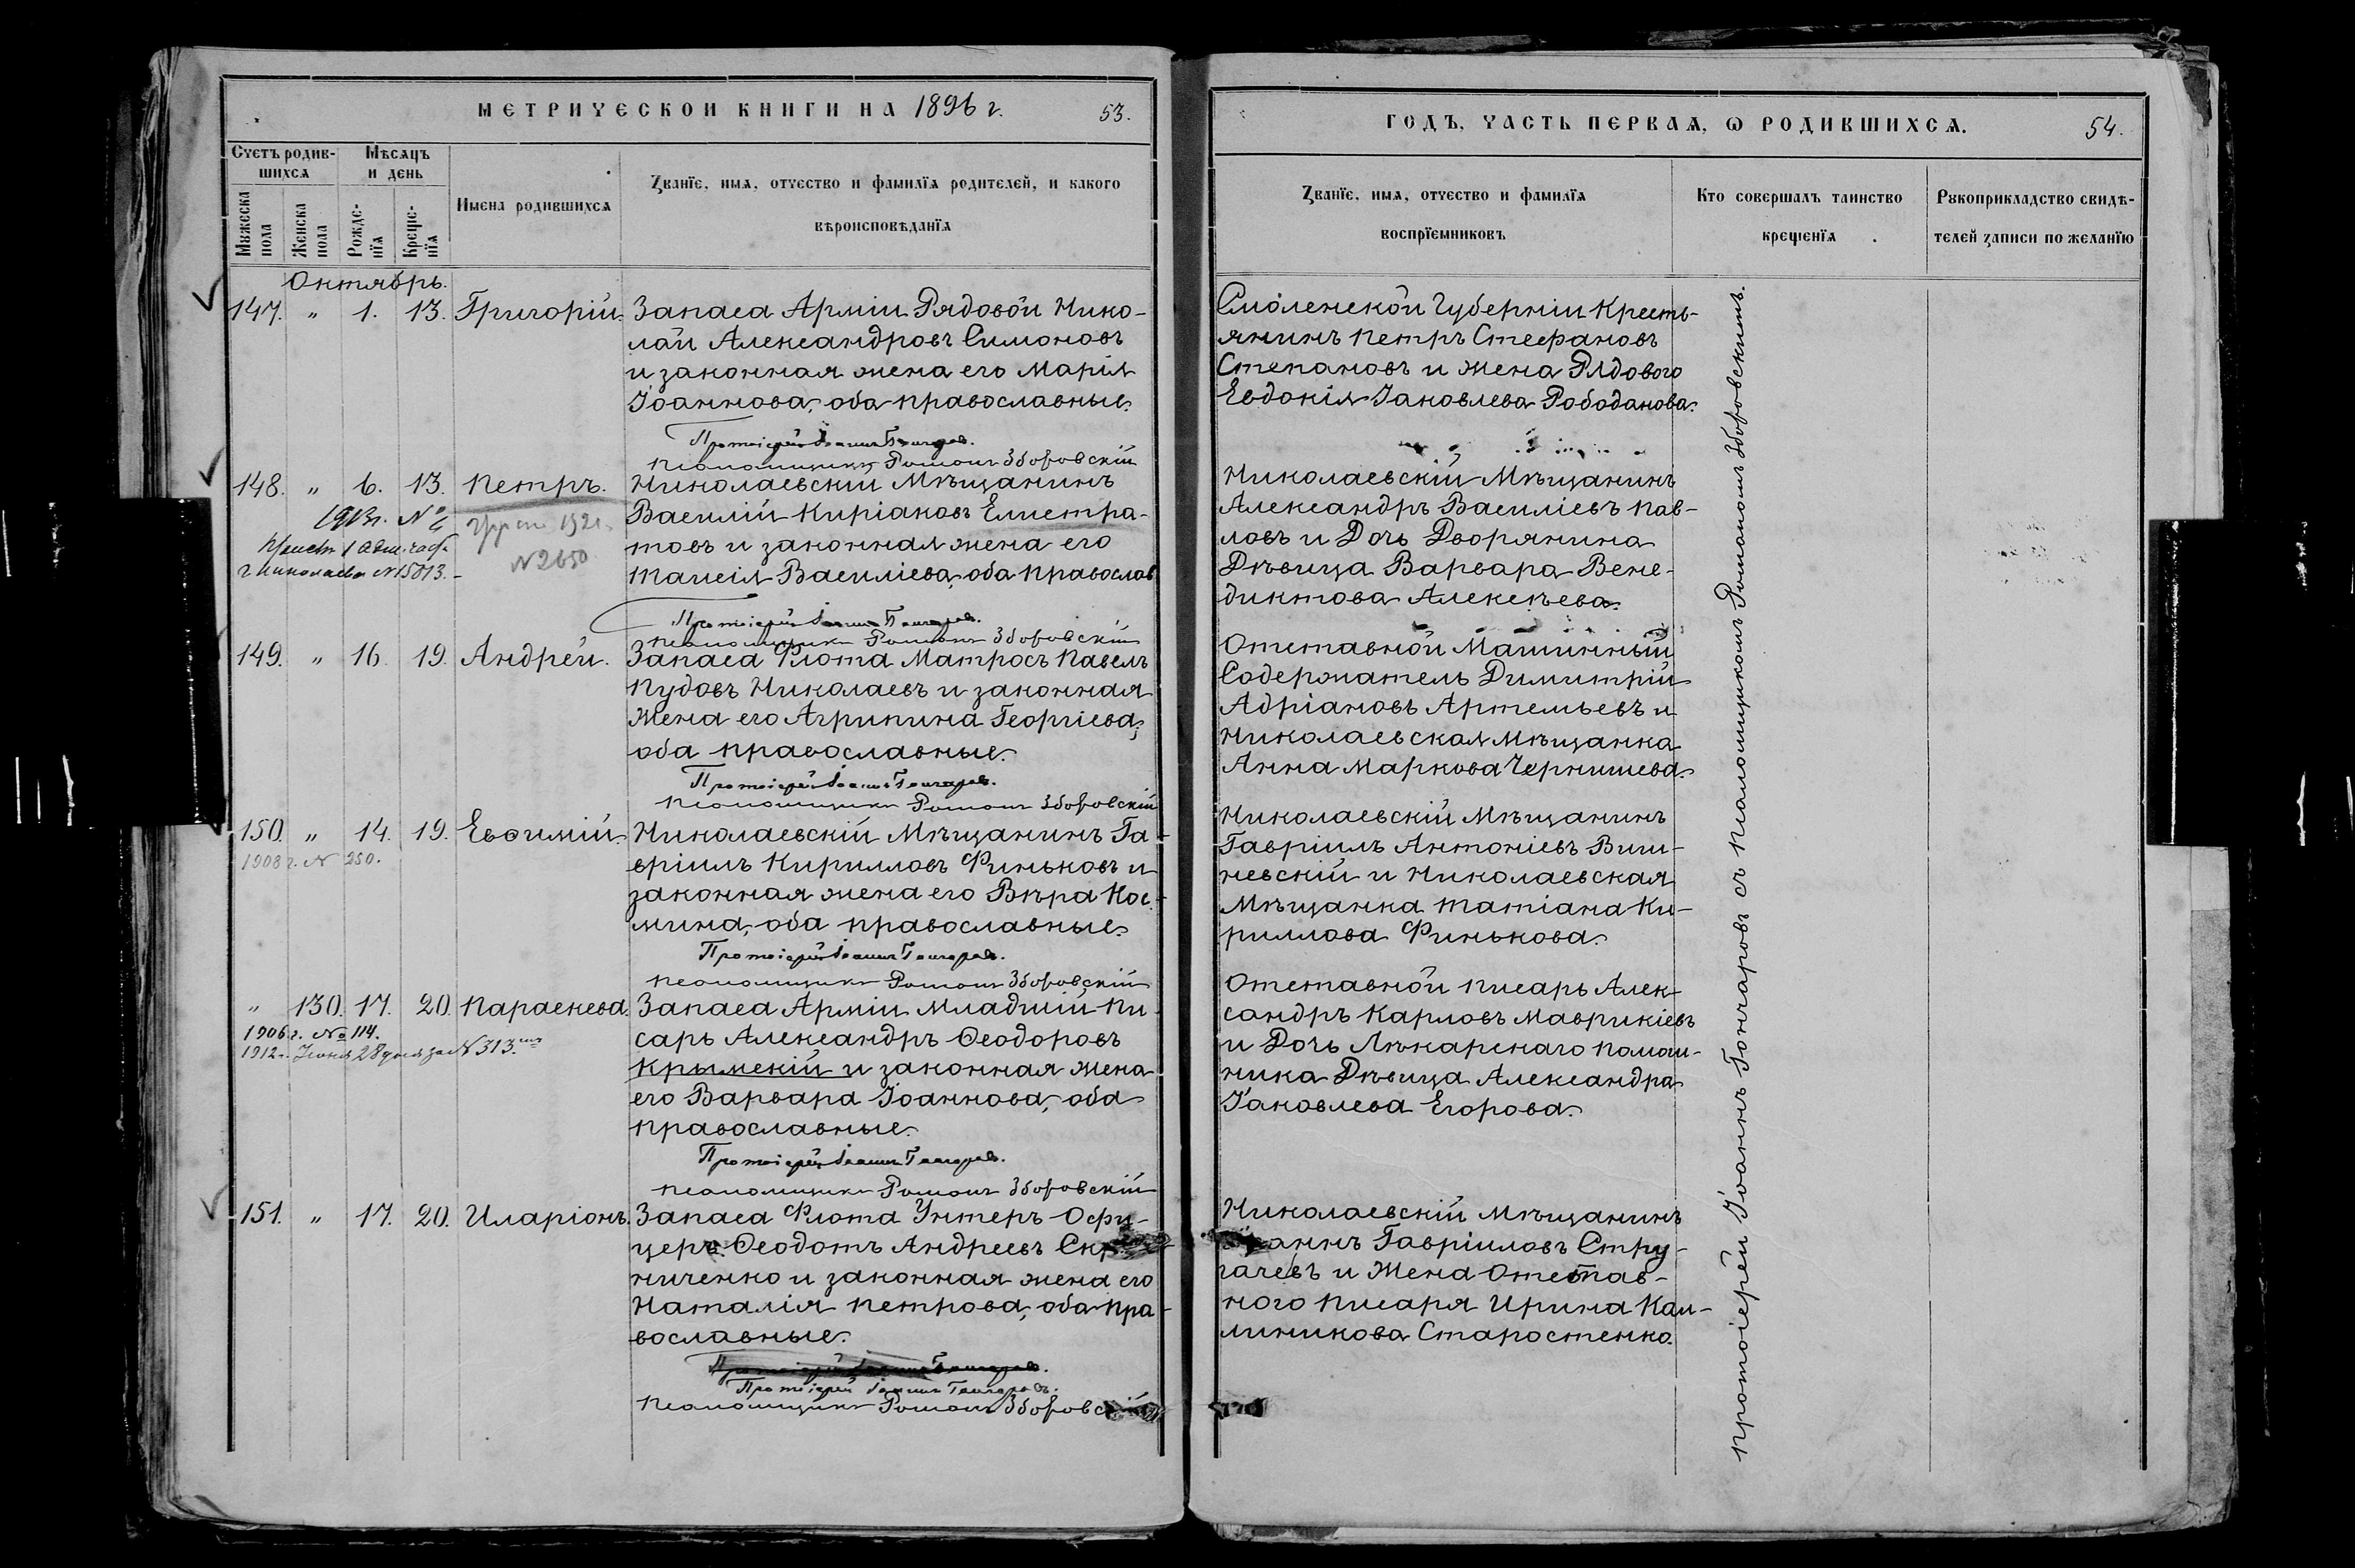 МЕТРИЧЕСКОЙ КНИГИ НА 1896 г. 53.
Счетъ родив-
шихся
Мѣсяцъ
и день
Мужеска
пола
Женска
пола
Рожде-
нія
Креще-
нія
Имена родившихся
Званіе, имя, отчество и фамилія родителей, и какого
вѣроисповѣданія
Октябрь.
147. " 1. 13. Григорій. Запаса Арміи Рядовой Нико-
лай Александровъ Симоновъ
и законная жена его Марія
Іоаннова, оба православные.
Протоіерей Іоаннъ Гончаровъ.
Псаломщикъ Романъ Зборовскій
148. " 6. 13. Петръ. Николаевскій Мѣщанинъ
Василій Киріаковъ Елистра-
товъ и законная жена его
Таисія Василіева, оба православ
1913г. №
1921
N 2650
г Николаева N 15813.
Протоіерей Іоаннъ Гончаровъ.
Псаломщикъ Романъ Зборовскій
149. " 16. 19. Андрей. Запаса Флота Матросъ Павелъ
Пудовъ Николаевъ и законная
жена его Агрипина Георгіева,
оба православные.
Протоіерей Іоаннъ Гончаровъ.
Псаломщикъ Романъ Зборовскій
150. " 14. 19. Евѳимій. Николаевскій Мѣщанинъ Га-
вріилъ Кирилловъ Финьковъ и
законная жена его Вѣра Кос-
мина, оба православные.
1908 г. N 250.
Протоіерей Іоаннъ Гончаровъ.
Псаломщикъ Романъ Зборовскій
" 130. 17. 20. Параскева. Запаса Арміи Младшій Пи-
сарь Александръ Ѳеодоровъ
Крымскій и законная жена
его Варвара Іоаннова, оба
православные.
1906 г. № 114.
1912 г. Іюня 28 дня за N 313.
Протоіерей Іоаннъ Гончаровъ.
Псаломщикъ Романъ Зборовскій
151. " 17. 20. Иларіонъ. Запаса Флота Унтеръ-Офи-
церъ Ѳеодотъ Андреевъ
ниченко и законная жена его
Наталія Петрова, оба пра-
вославные.
Протоіерей Іоаннъ Гончаровъ.
Протоіерей Іоаннъ Гончаровъ.
Псаломщикъ Романъ Зборовскій
ГОДЪ, ЧАСТЬ ПЕРВАЯ, Ѡ РОДИВШИХСЯ. 54.
Званіе, имя, отчество и фамилія
воспріемниковъ
Кто совершалъ таинство
крещенія
Рукоприкладство свидѣ-
телей записи по желанію
Смоленской Губерніи Кресть-
янинъ Петръ Стефановъ
Степановъ и жена Рядового
Евдокія Іаковлева Рободанова.
Николаевскій Мѣщанинъ
Александръ Василіевъ Пав-
ловъ и Дочь Дворянина
Дѣвица Варвара Вене-
диктова Алексѣева.
Отставной Машинный
Содержатель Димитрій
Адріановъ Артемьевъ и
Николаевская Мѣщанка
Анна Маркова Чернишева.
Николаевскій Мѣщанинъ
Гавріилъ Антоніевъ Виш-
невскій и Николаевская
Мѣщанка Татіана Ки-
риллова Финькова.
Отставной Писарь Алек-
сандръ Карловъ Маврикіевъ
и Дочь Лѣкарскаго Помощ-
ника Дѣвица Александра
Іаковлева Егорова.
Николаевскій Мѣщанинъ
Іоаннъ Гавріиловъ Стру-
гачевъ и Жена Отстав-
ного Писаря Ирина Кал-
линикова Старостенко.
Протоіерей Іоаннъ Гончаровъ съ Псаломщикомъ Романомъ Зборовскимъ.